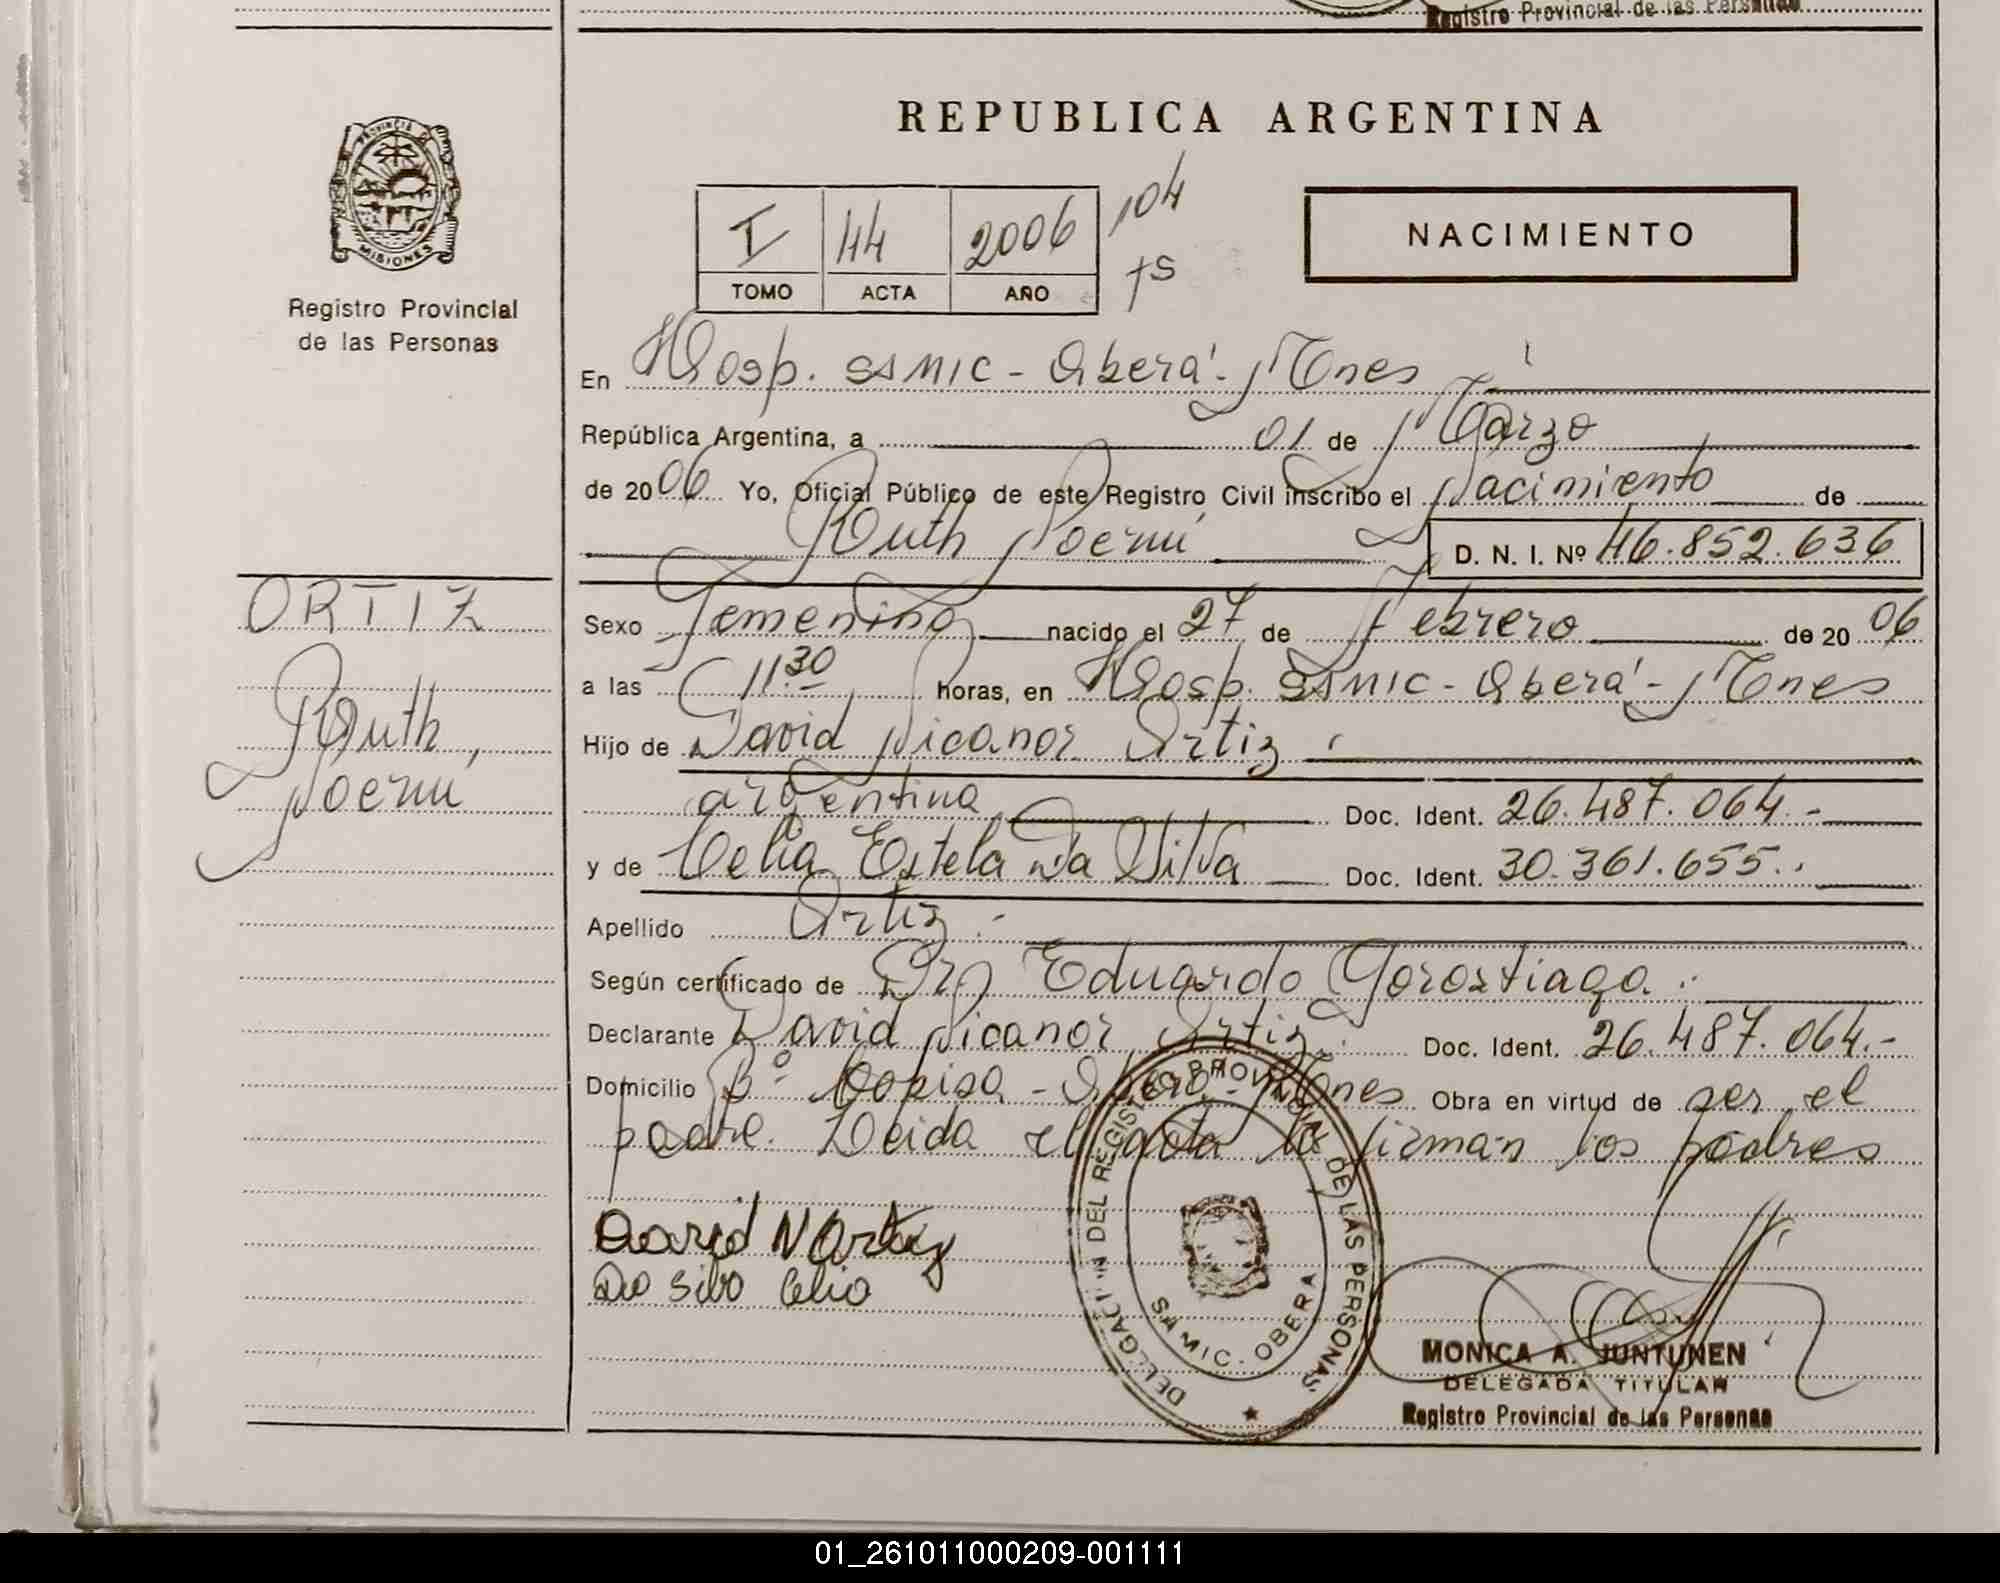 Registro Provincial de las Personas
REPUBLICA ARGENTINA
PROVINCIA DE
MISIONES
Registro Provincial
de las Personas
I 44 2006 104
TOMO ACTA AÑO
NACIMIENTO
En Hosp. SAMIC - Oberá - Mnes
República Argentina, a 01 de Marzo
de 2006 Yo, Oficial Público de este Registro Civil inscribo el Nacimiento de
Ruth Noemí D. N. I. Nº 46.852.636
ORTIZ
Ruth,
Noemí
Sexo Femenino nacido el 27 de Febrero de 2006
a las 11.30 horas, en Hosp. SAMIC - Oberá - Mnes
Hijo de David Nicanor Ortiz
argentina Doc. Ident. 26.487.064.-
y de Celia Estela Da Silva Doc. Ident. 30.361.655.
Apellido Ortiz.-
Según certificado de Dr. Eduardo Gorostiaga.
Declarante David Nicanor Ortiz. Doc. Ident. 26.487.064.-
Domicilio Bº Copisa - Oberá - Mnes Obra en virtud de ser el
padre. Leida el acta la firman los padres
David N Ortiz
Da Silva Celia
DELEGACION DEL REGISTRO PROVINCIAL DE LAS PERSONAS
SAMIC - OBERA
MONICA A. JUNTUNEN
DELEGADA TITULAR
Registro Provincial de las Personas
01_261011000209-001111